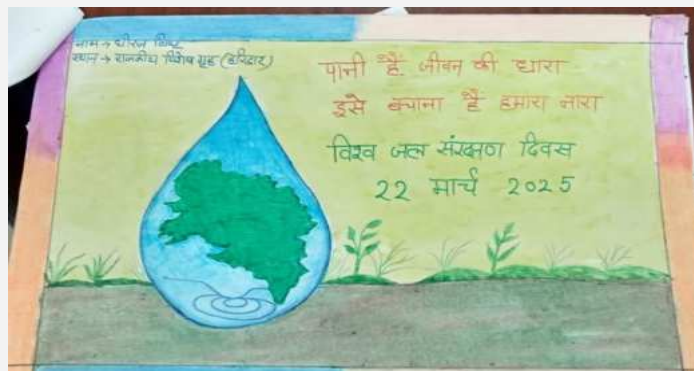 नाम → धीरज सिंह
स्थान → राजकीय विशेष गृह (हरिद्वार)
पानी हैं जीवन की धारा
इसे बचाना है हमारा नारा
विश्व जल संरक्षण दिवस
22 मार्च 2025